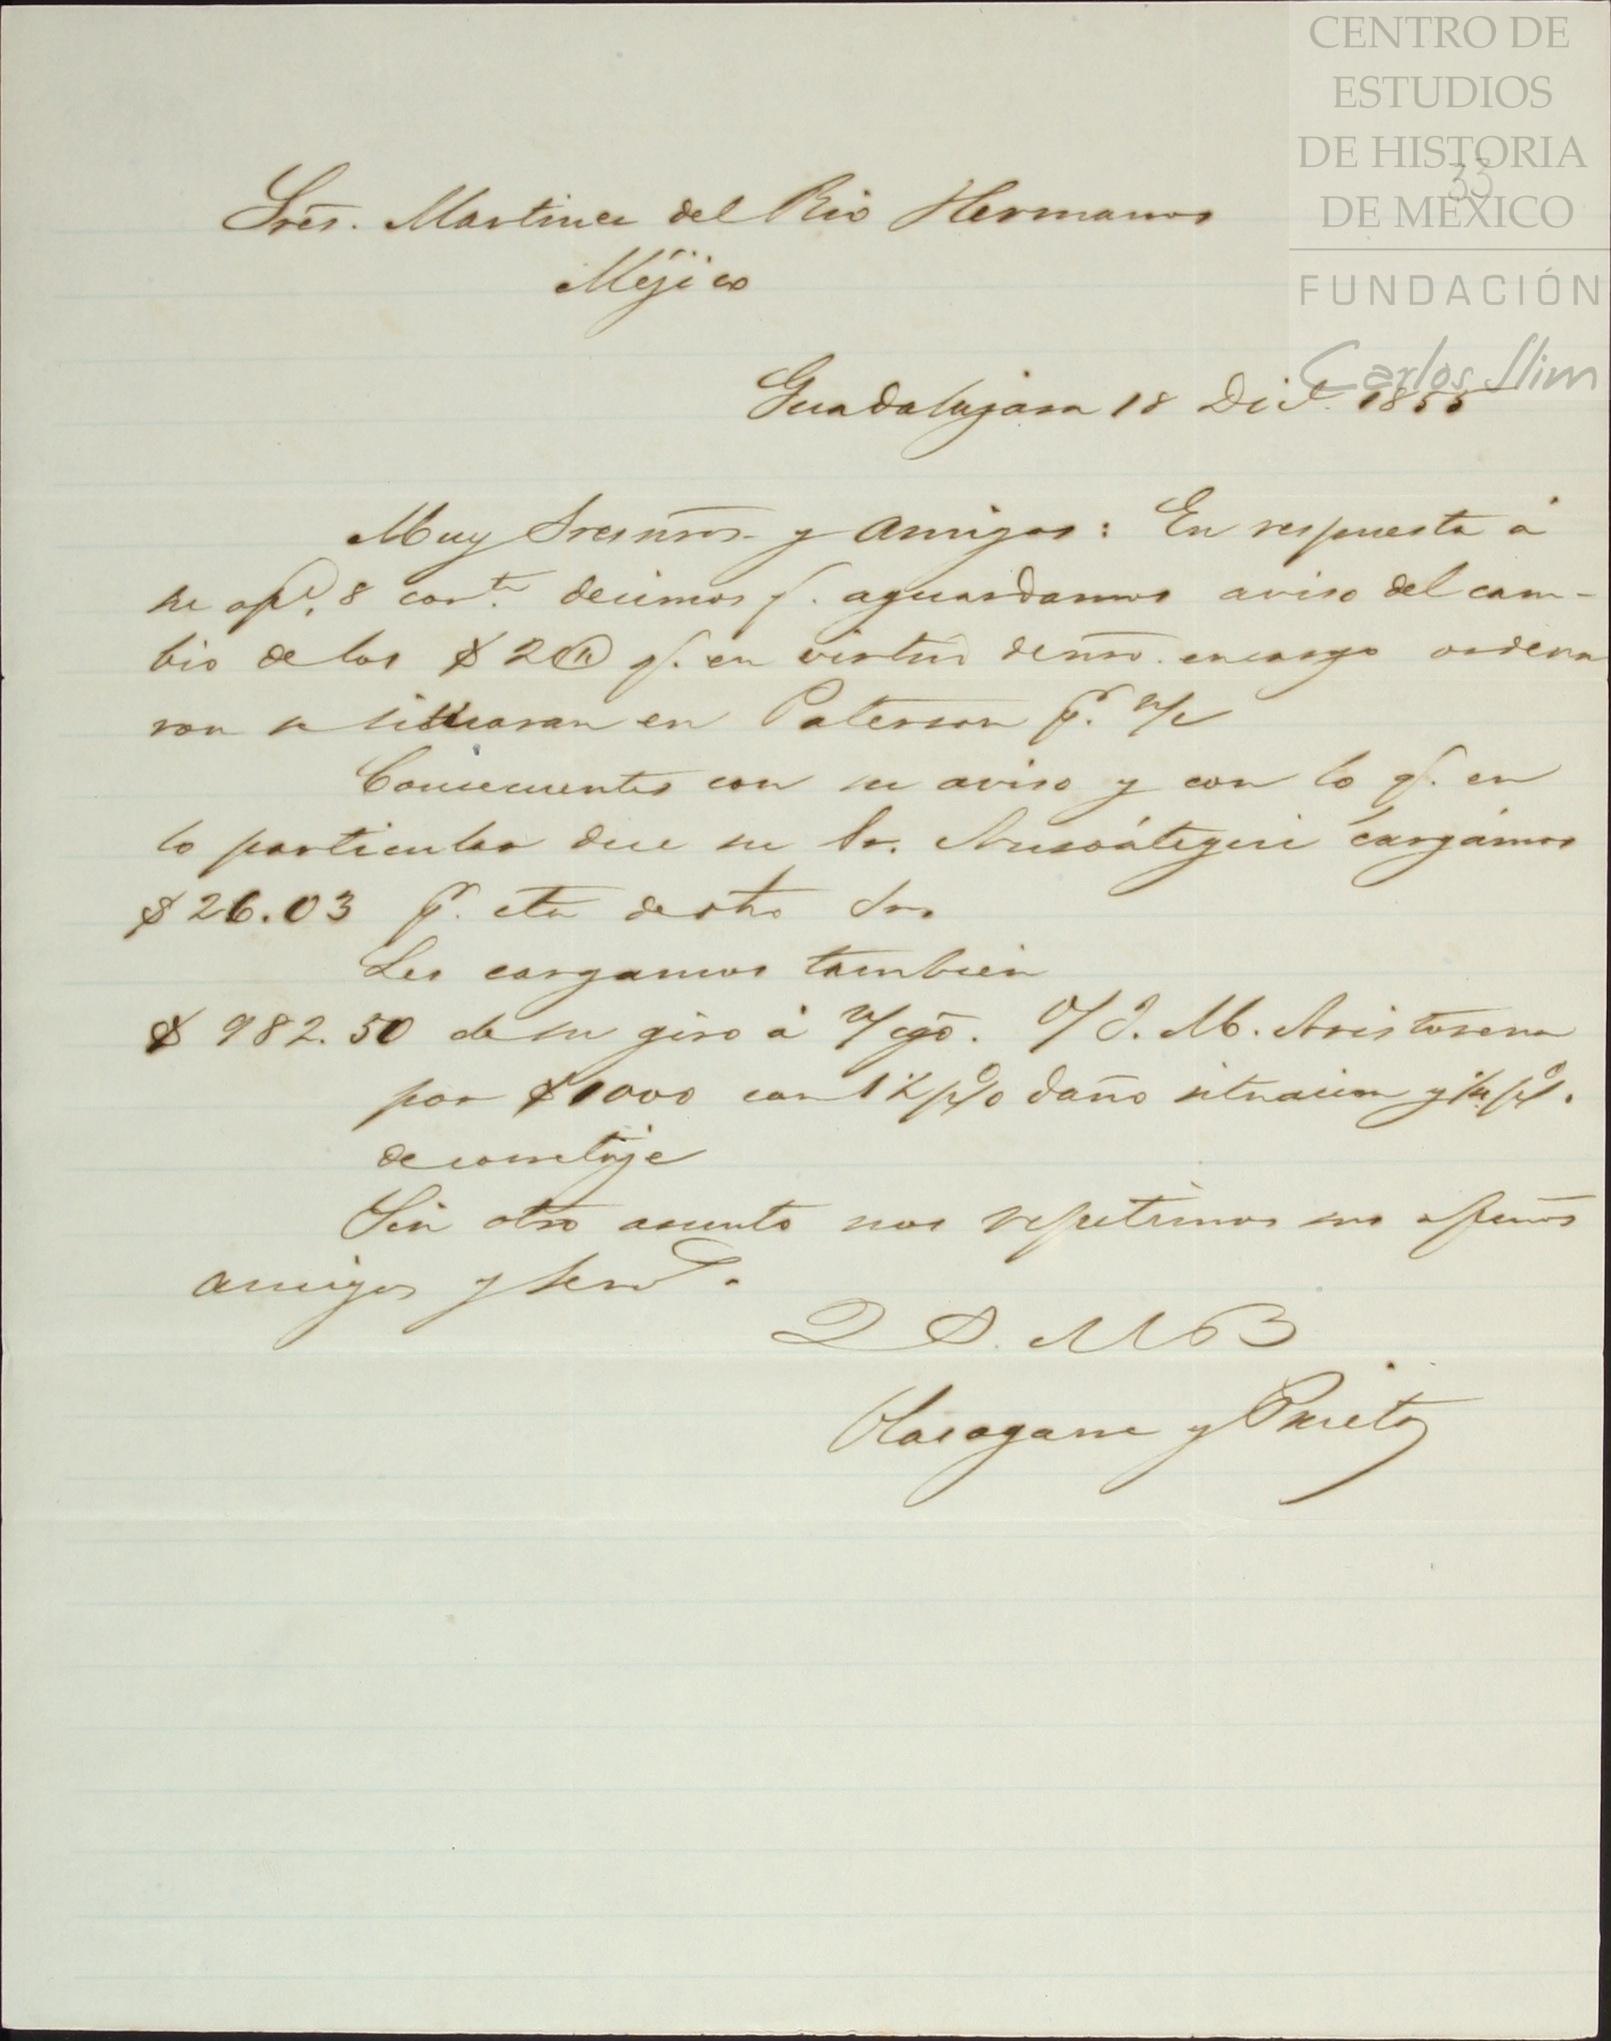 CENTRO DE
ESTUDIOS
DE HISTORIA
DE MÉXICO
FUNDACIÓN
Carlos Slim
33
Sres. Martinez del Rio Hermanos
Méjico
Guadalajara 18 Dic.e 1855
Muy Sres nros. y amigos: En respuesta á
su ap.e 8 cor.te decimos q. aguardamos aviso del cam-
bio de los $ 2 q. en virtud de nro. encargo ordena
ron se situaran en Paterson p.r n/c
Consecuentes con su aviso y con lo q. en
lo particular dice su Sr. Ansoátegui cargámos
$ 26.03 p.r cta de dho Sor
Les cargamos tambien
$ 982.50 de su giro á n/cgo. o/ J. M. Aristorena
por $ 1000 con 1½ p% daño situacion y ¼ p%.
de corretaje
Sin otro asunto nos repetimos sus afmos
amigos y serv.s
Q S. M B
Olasagarre y Prieto